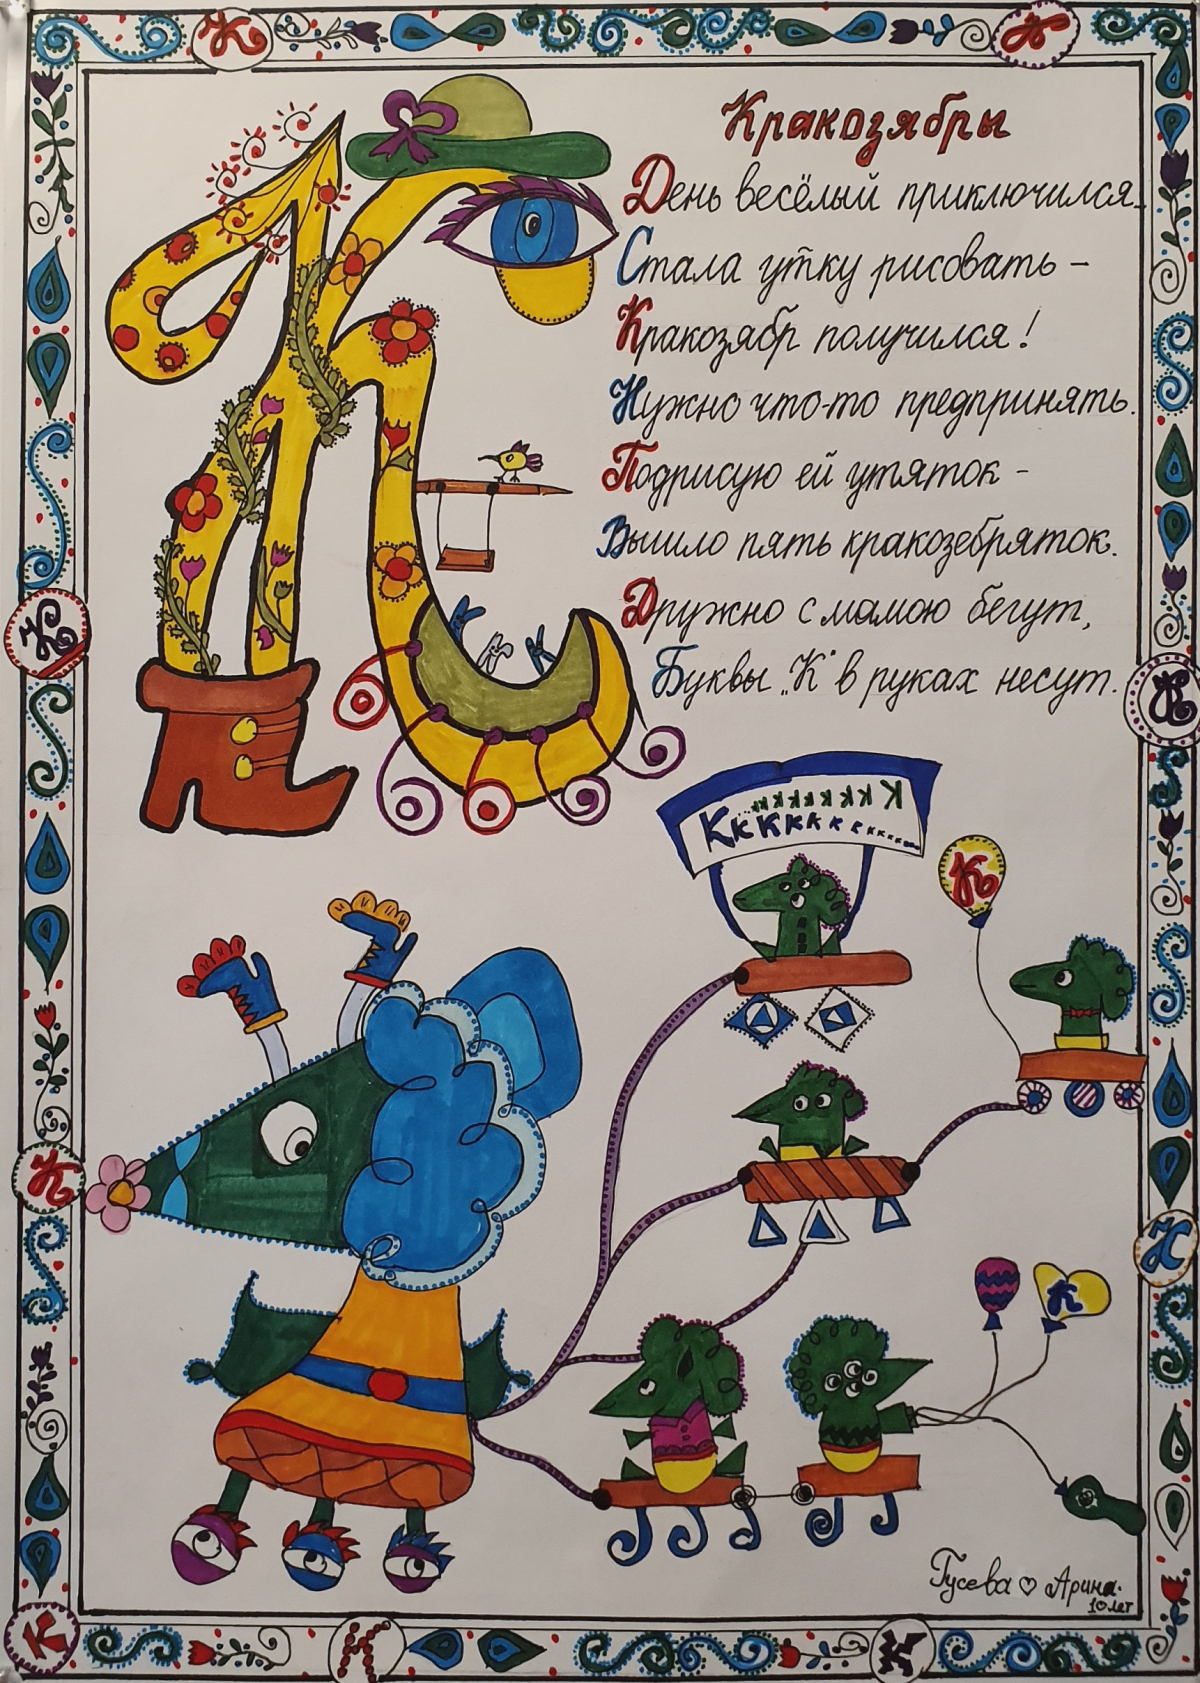 Кракозябры
День весёлый приключился_
Стала утку рисовать –
Кракозябр получился!
Нужно что-то предпринять.
Подрисую ей утяток –
Вышло пять кракозебряток.
Дружно с мамою бегут,
Буквы „К" в руках несут.
К К К К К К К К К
К К К К К К К К К К К К К
К
К
К
Гусева ♡ Арина.
10 лет